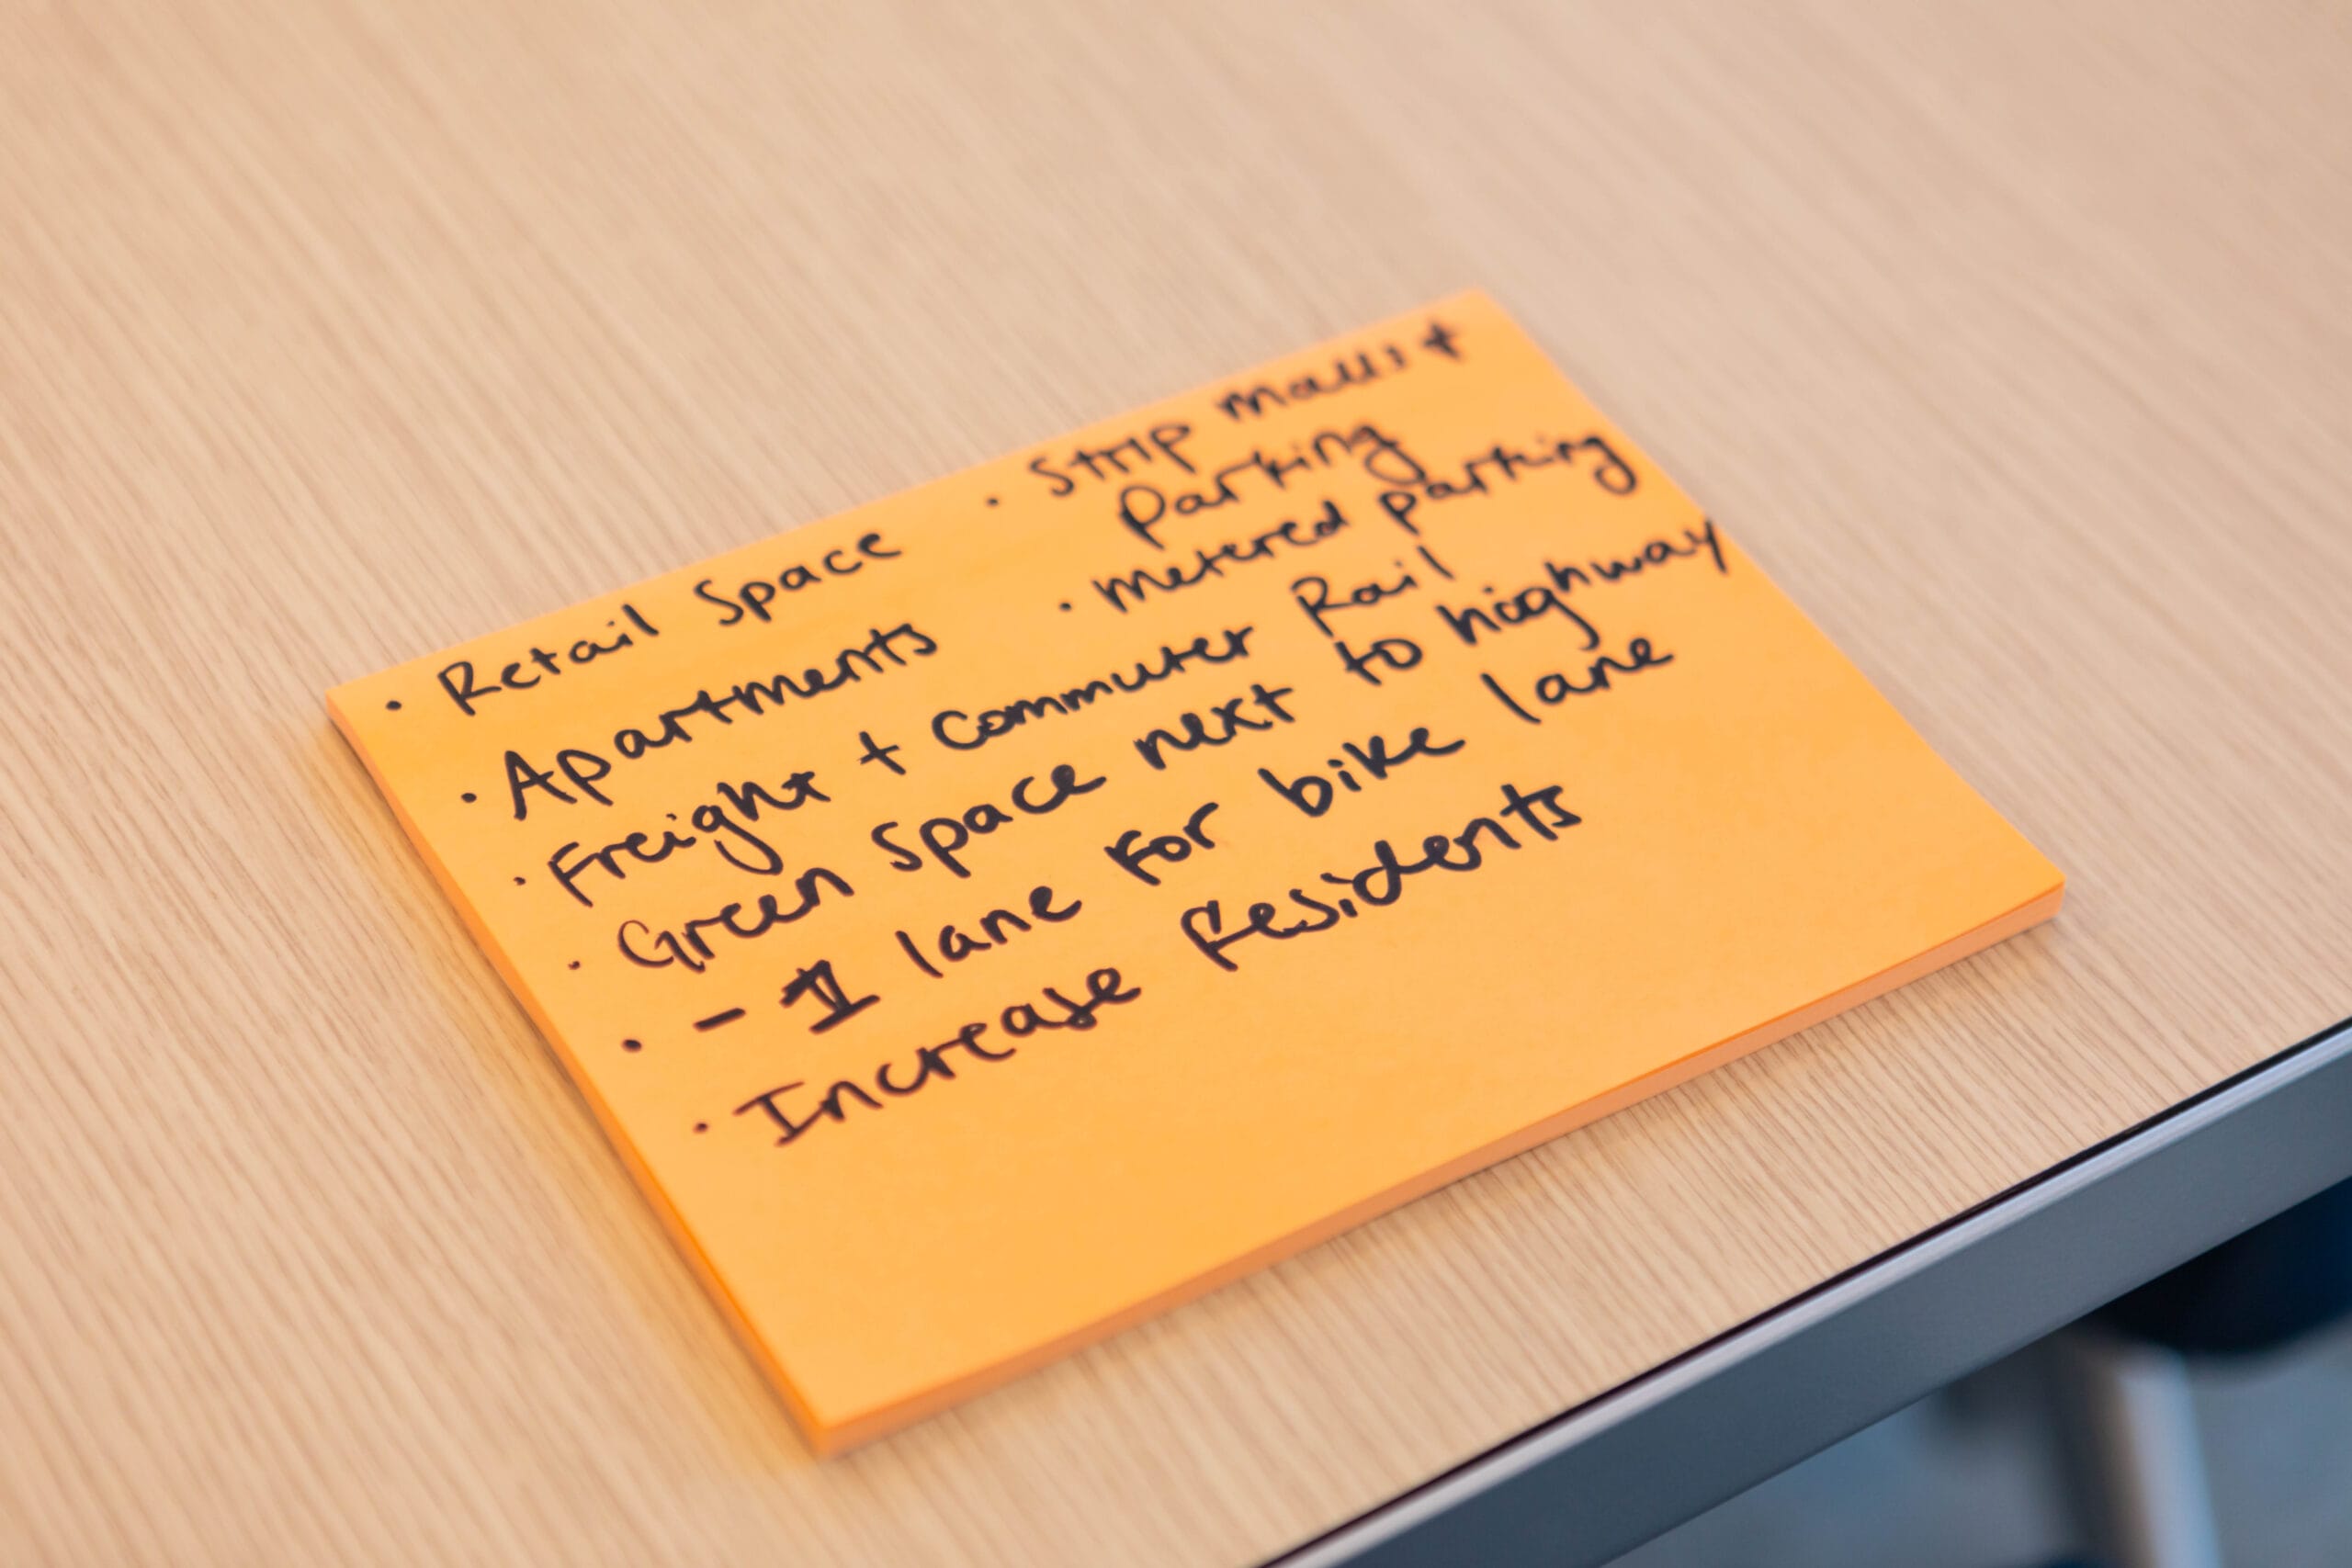 • Retail Space
• Apartments
• Freight + Commuter Rail
• Green Space next to highway
• - 1 lane for bike lane
• Increase Residents
• Strip Malls +
Parking
• Metered parking